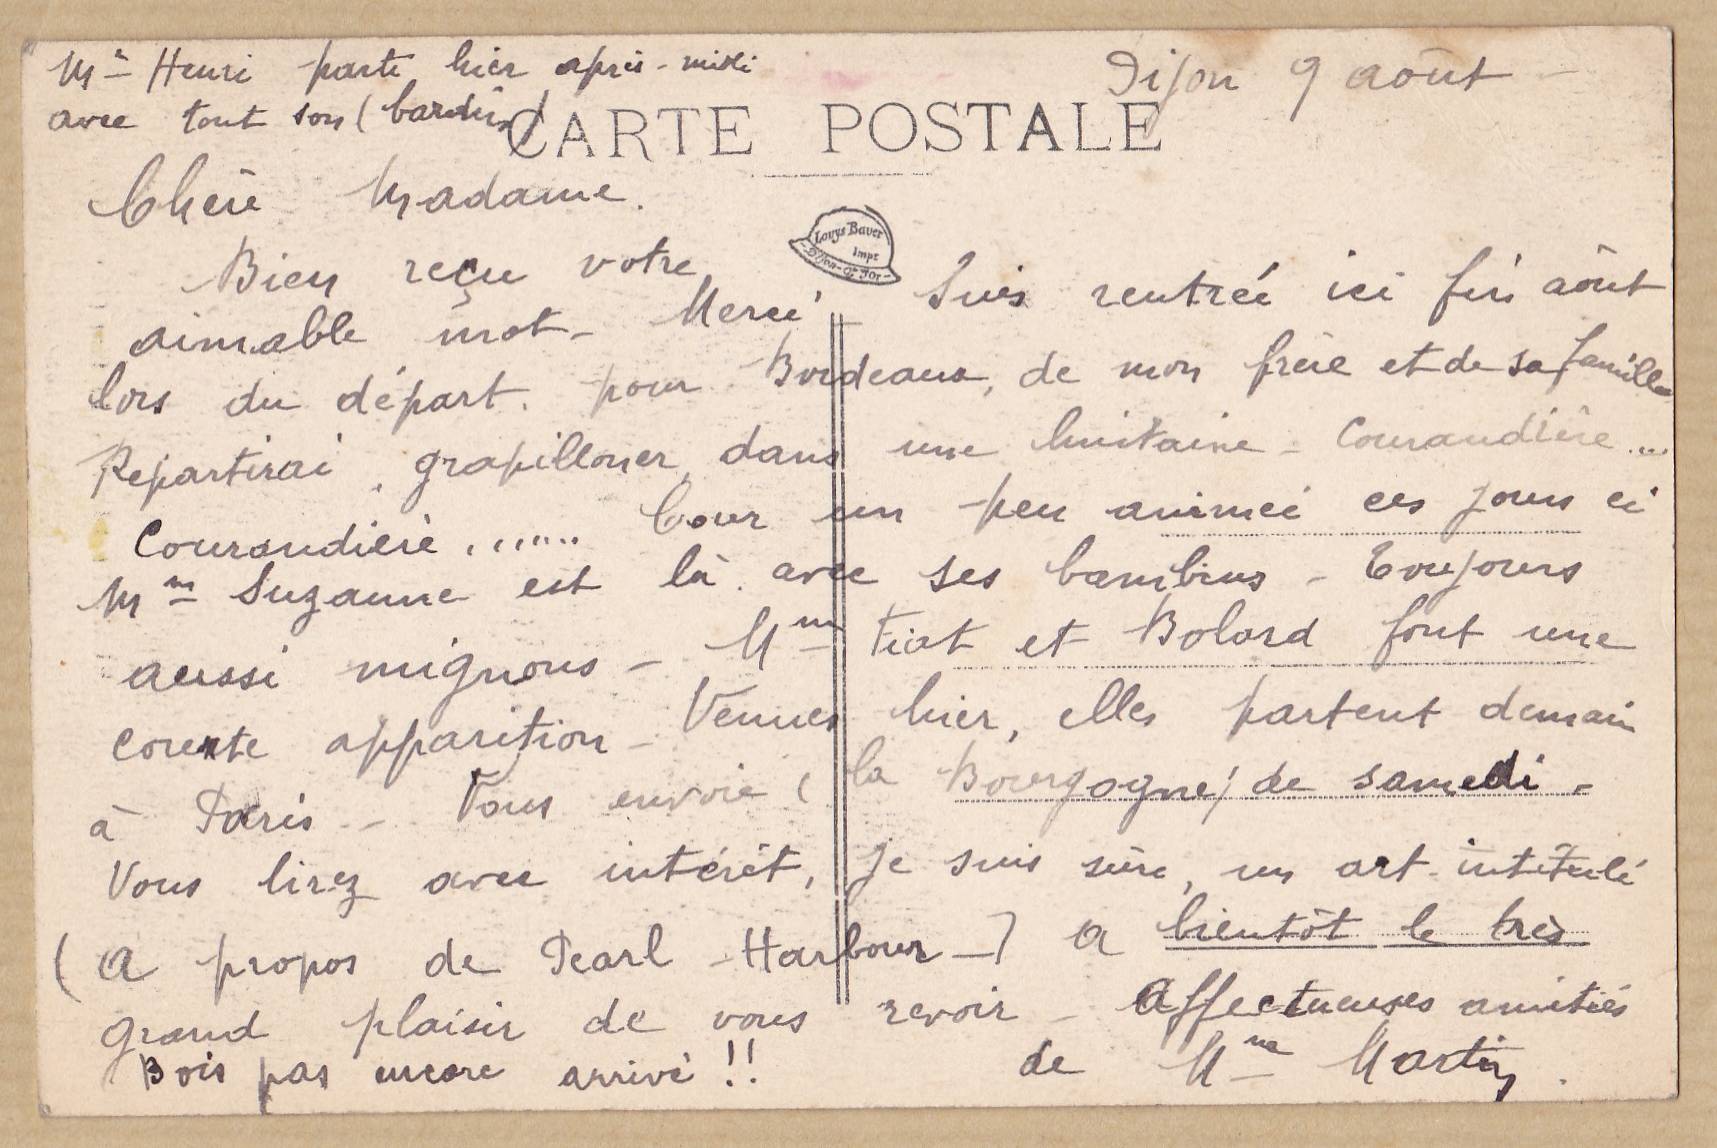 Mr Henri parti hier après-midi
avec tout son (bardus)
Dijon 9 août -
CARTE POSTALE
Louys Bauer
Impr
Dijon
Chère Madame.
Bien reçu votre
aimable mot - Merci! Suis rentrée ici fin août
lors du départ, pour Bordeaux, de mon frère et de sa famille
Repartirai, grapilloner, dans une huitaine - Courandière...
Courandière ....... Cour un peu animée ces jours ci
Mme Suzanne est là avec ses bambins - Toujours
aussi mignons - Mmes Fiat et Bolard font une
courte apparition - Venues hier, elles partent demain
à Paris - Vous envoie (la Bourgogne) de samedi -
Vous lirez avec intérêt, je suis sûre, un art. intitulé
(A propos de Pearl-Harbour -) A bientôt le très
grand plaisir de vous revoir - Affectueuses amitiés
de Mme Martin.
Bois pas encore arrivé !!